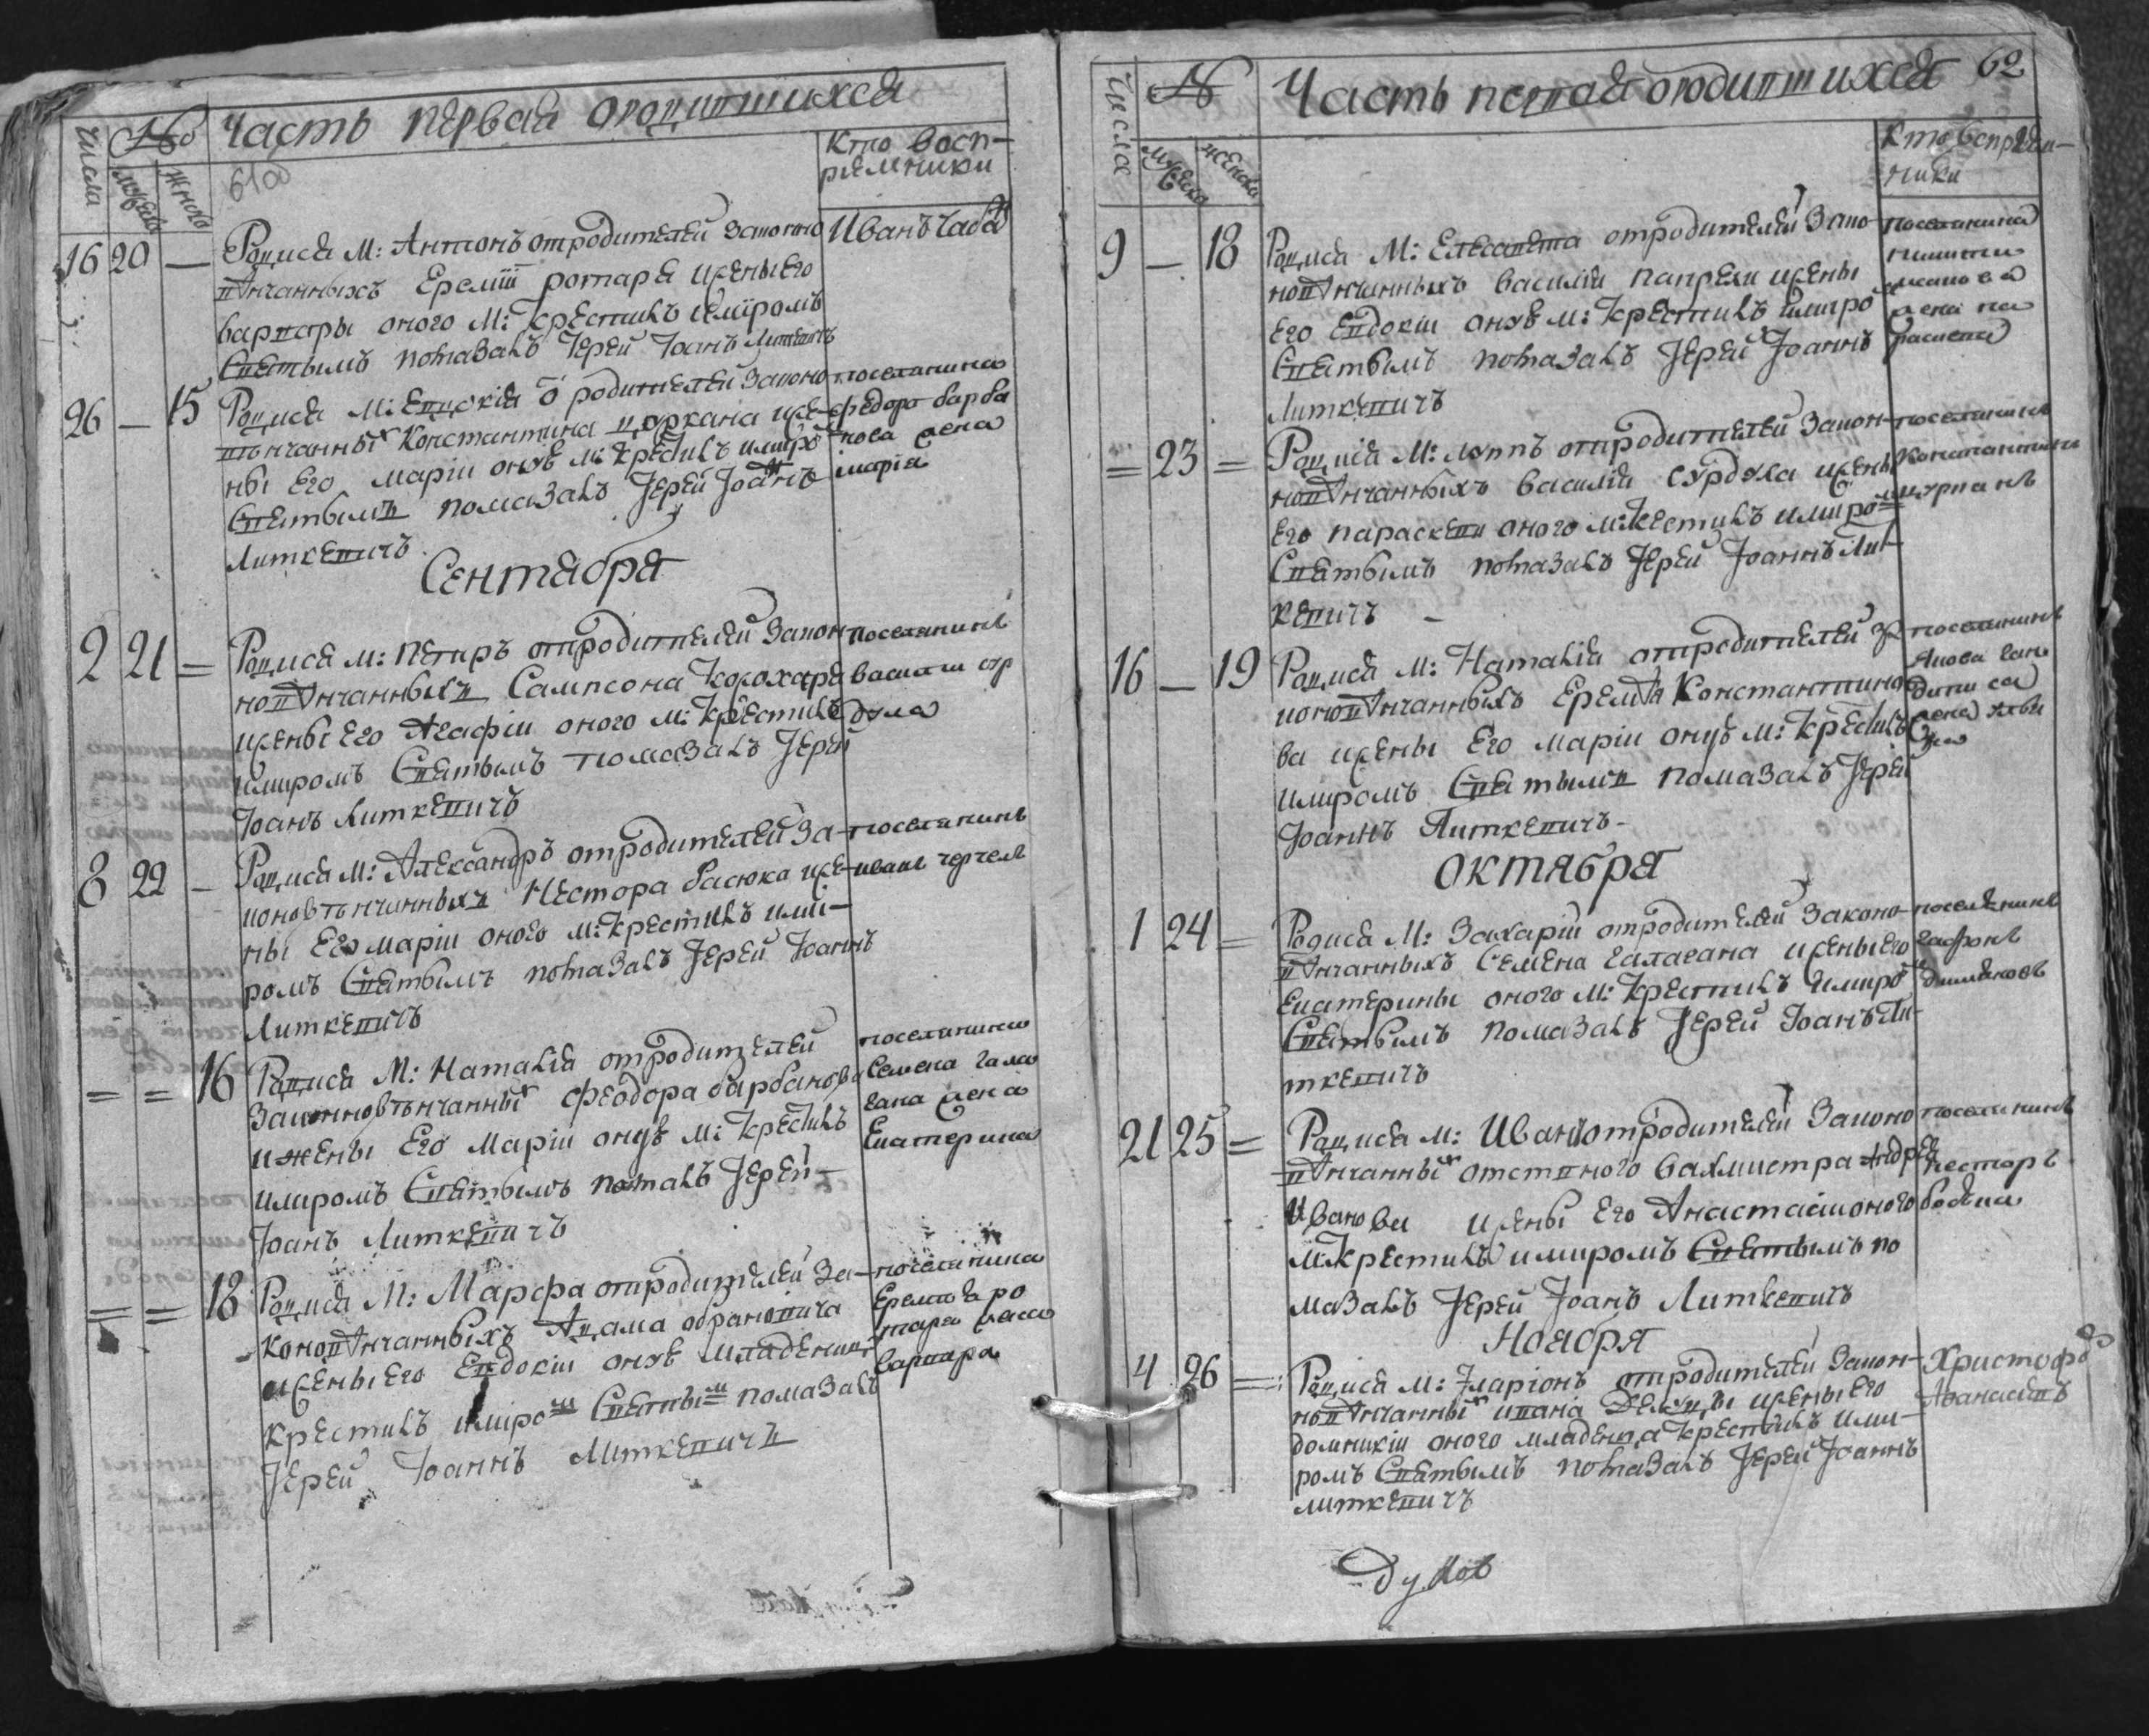 Часть первая ородившихся
Числа
№
мужеска
женска
Кто восп-
риемники
16 20 —
Родися М: Антонъ отродителей законно
вѣнчанныхъ Еремiи ротаря и жены Его
варвары оного М: Крестилъ и мѵромъ
Святымъ помазалъ Iерей Iоанъ Литкевичъ
Иванъ Чабан
26 — 15
Родися М: Евдокiя ѿ родителей законно
вѣнчанных Константина цуркана и же-
ны Его марiи онуѣ М: Крестилъ и миро
Святымъ помазалъ Iерей Iоанъ
Литкевичъ
поселянина
федора барба
нова жена
марiя
Сентября
2 21 =
Родися м: Петръ отродителей закон
новѣнчанныхъ Сампсона Корохаря
и жены Его Агафiи оного м: Крестилъ
и миромъ Святымъ помазалъ Iерей
Iоанъ Литкевичъ
поселянинъ
василiи сур
дула
8 22 —
Родися М: Александръ отродителей за-
коновѣнчанныхъ Нестора басюка и же-
ны Его марiи оного м: крестилъ и ми-
ромъ Святымъ помазалъ Iерей Iоаннъ
Литкевичъ
поселянинъ
иванъ чегчелъ
= = 16
Родися М: Наталiя отродителей
Законновѣнчанных феодора барбанова
и жены Его Марiи онуѣ М: Крестилъ
и миромъ Святымъ помалъ Iерей
Iоанъ Литкевичъ
поселянина
Семена гала
гана жена
Екатерина
= = 18
Родися М: Марфа отродителей За-
коновѣнчанныхъ Адама обрановича
и жены Его Евдокiи онуѣ младеница
крестилъ и миро м Святым помазалъ
Iерей Iоаннъ Литкевичъ
поселянина
Еремiя ро
таря жена
варвара
Часть первая ородившихся 62
Числа
№
мужеска
женска
Кто воспрiем-
ники
9 — 18
Родися М: Елисавета отродителей Зако-
новѣнчанныхъ василiя папрели и жены
Его Евдокiи онуѣ м: Крестилъ и миро
Святымъ помазалъ Iерей Iоаннъ
Литкевичъ
поселянина
жена па
раскева
= 23 =
Родися М: лупъ отродителей Закон-
новѣнчанныхъ василiя Сурдула и жены
Его параскеви оного м: Кестилъ и миро
Святымъ помазалъ Iерей Iоаннъ Лит
кевичъ —
поселянинъ
Константинъ
цурканъ
16 — 19
Родися М: Наталiя отродителей За
коновѣнчанныхъ Еремѣя Константино
ва и жены Его марiи онуѣ м: Крестилъ
и миромъ Святымъ помазалъ Iерей
Iоаннъ Литкевичъ -
поселянинъ
Якова
жена
ОКТЯбря
1 24 =
Родися М: Захарiи отродителей законо-
вѣнчанныхъ Семена галагана и жены Его
Екатерины оного М: Крестилъ и миро
Святымъ помазалъ Iерей Iоанъ Ли-
ткевичъ
поселянинъ
гафонъ
димяновъ
21 25 =
Родися М: Иванъ отродителей Законо
вѣнчанных отставного вахмистра Андрея
Иванова и жены Его Анастасiи оного
м: Крестилъ и миромъ Святымъ по
мазалъ Iерей Iоанъ Литкевичъ
поселянинъ
несторъ
бодяка
Ноября
4 26 =
Родися М: Iларiонъ отродителей Закон-
новѣнчанных ивана и жены Его
домникiи оного младенца Крестилъ и ми-
ромъ Святымъ помазалъ Iерей Iоаннъ
литкевичъ
Христофо
Афанасiевъ